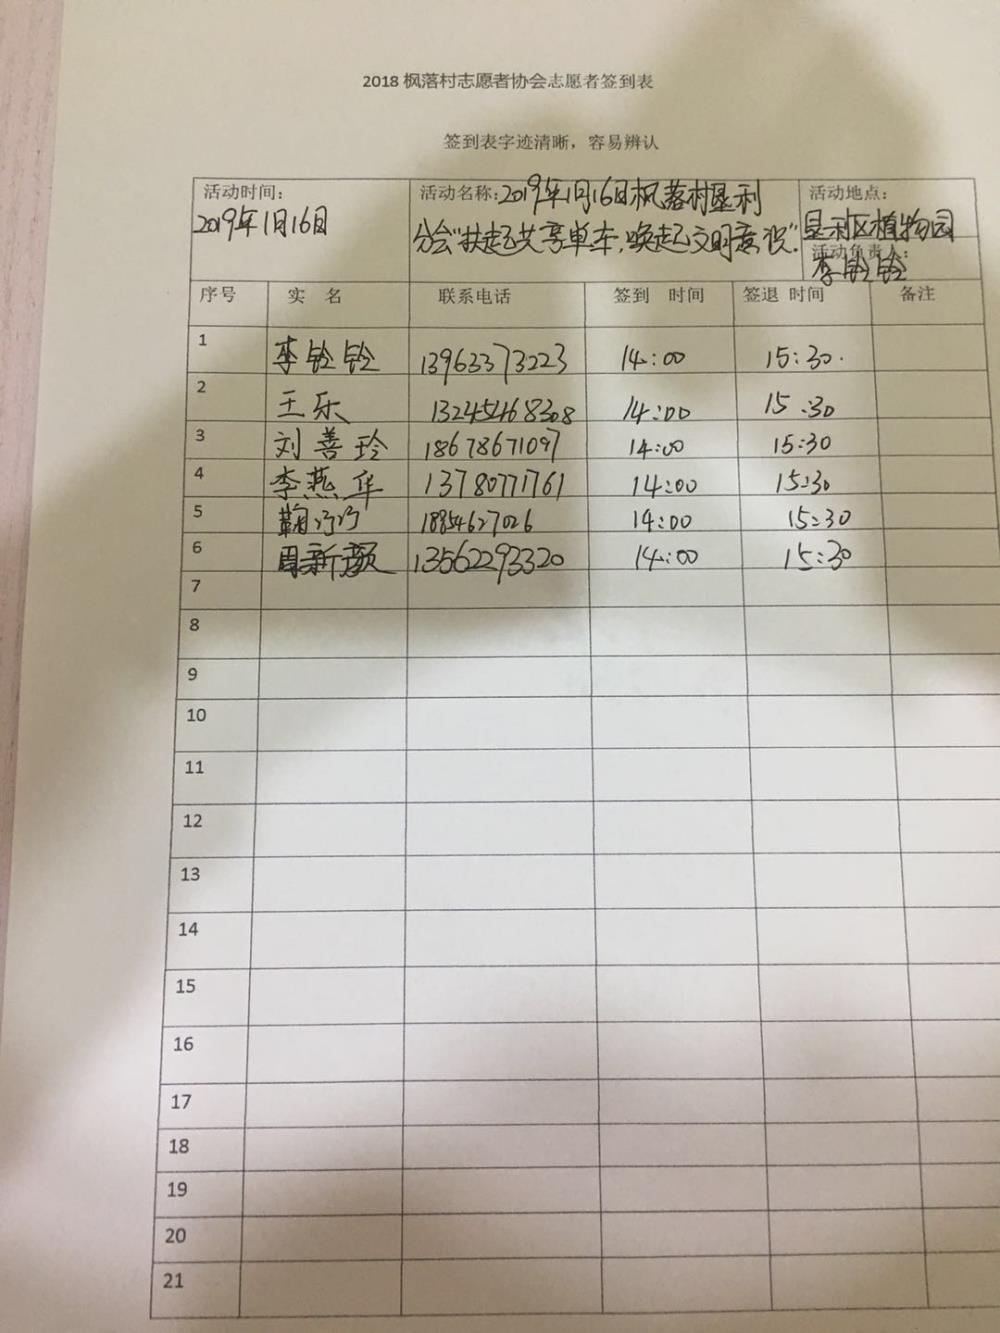 2018 枫落村志愿者协会志愿者签到表
签到表字迹清晰，容易辨认
活动时间：
2019年1月16日
活动名称：2019年1月16日枫落村垦利
分会"扶起共享单车，唤起文明意识"
活动地点：
垦利区植物园
活动负责人：
李铃铃
序号 实 名 联系电话 签到 时间 签退 时间 备注
1 李铃铃 13963373223 14:00 15:30.
2 王乐 132454168308 14:00 15:30
3 刘善玲 18678671097 14:00 15:30
4 李燕华 13780771761 14:00 15:30
5 鞠 18854627026 14:00 15:30
6 周新颜 13562293320 14:00 15:30
7
8
9
10
11
12
13
14
15
16
17
18
19
20
21